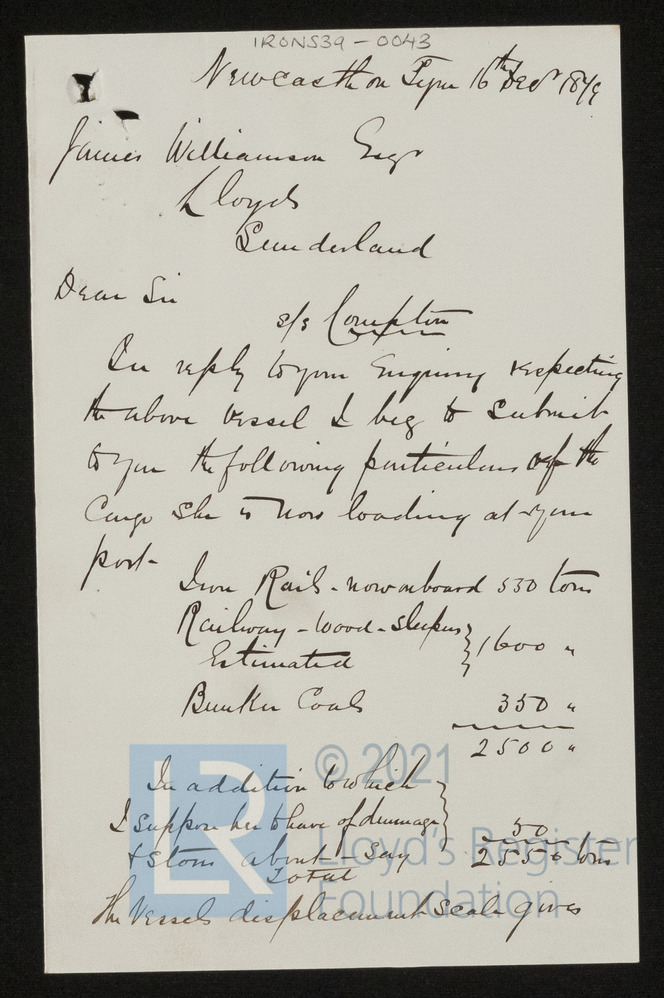 IRONS39-0043
Newcastle on Tyne 16th Decr 1879
James Williamson Esqr
Lloyds
Sunderland
Dear Sir
s/s Compton
In reply to your Enquiry respecting
the above vessel I beg to submit
to you the following particulars of the
Cargo she is now loading at your
port-
Iron Rails - now onboard 530 tons
Railway - wood - sleepers } 1600 "
Estimated
Bunker Coals 350 "
2500 "
In addition to which
I suppose her to have of dunnage
& stores about - say 50
Total 2550 tons
The Vessels displacement scale gives
© 2021
LR
Lloyd's Register
Foundation